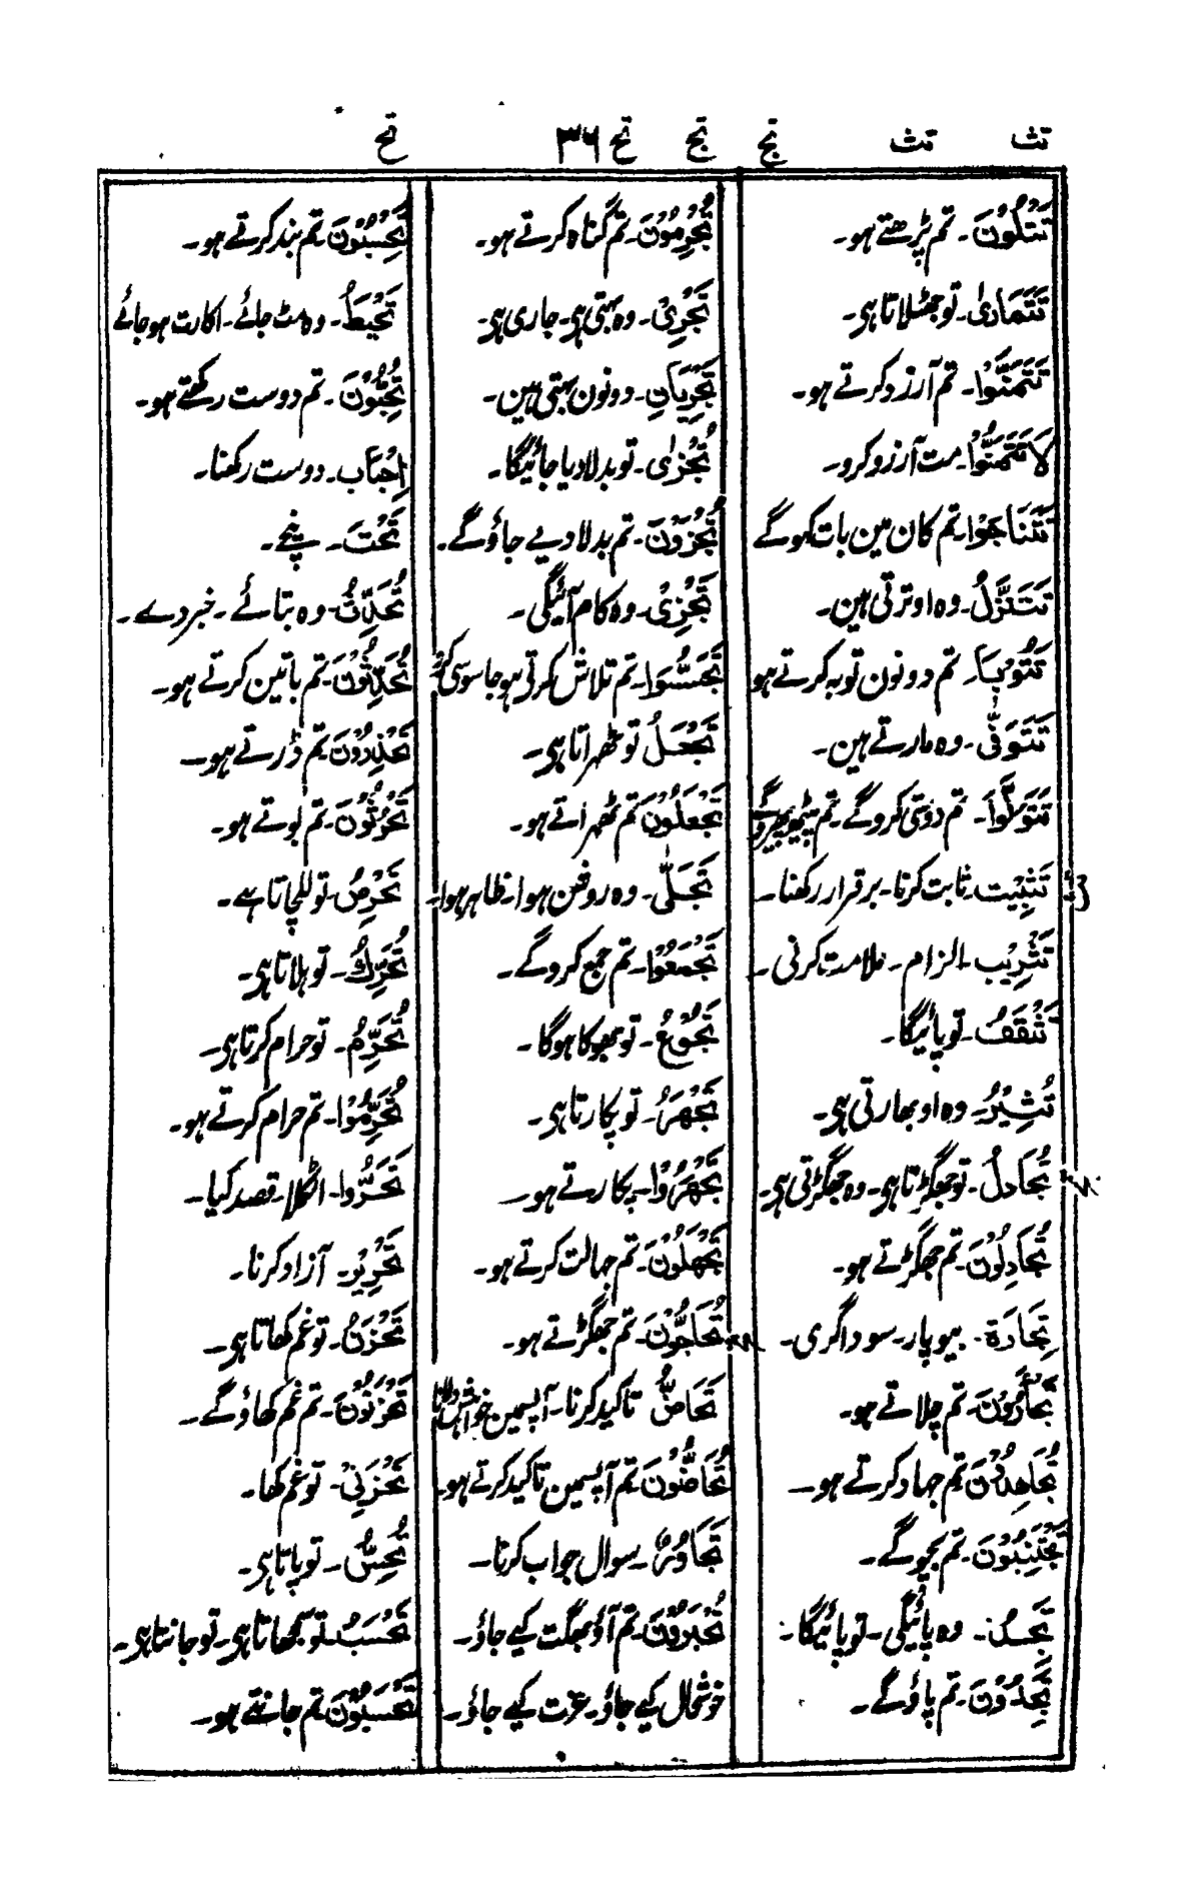 تث تث تج تج تح ۳۶ تح
تَتْلُوْنَ۔ تم پڑھتے ہو۔
تَتَمَارٰی۔ تو جھٹلاتا ہی۔
تَتَمَنَّوْا۔ تم آرزو کرتے ہو۔
لَا تَتَمَنَّوْا۔ مت آرزو کرو۔
تَتَنَاجَوْا۔ تم کان مین بات کہوگے
تَتَنَزَّلُ۔ وہ اوترتی ہین۔
تَتُوْبَا۔ تم دونون توبہ کرتے ہو
تَتَوَفّٰی۔ وہ مارتے ہین۔
تَتَوَلَّوْا۔ تم دوستی کروگے۔ تم پیٹھ پھیروگے
تث تَثْبِیْت۔ ثابت کرنا۔ برقرار رکھنا۔
تَثْرِیْب۔ الزام۔ ملامت کرنی۔
تَثْقَفُ۔ تو پائیگا۔
تُثِیْرُ۔ وہ اوبھارتی ہی۔
تج تُجَادِلُ۔ تو جھگڑتا ہی۔ وہ جھگڑتی ہی۔
تُجَادِلُوْنَ۔ تم جھگڑتے ہو۔
تِجَارَة۔ بیوپار۔ سوداگری۔
تَجْأَرُوْنَ۔ تم چلاتے ہو۔
تُجَاهِدُوْنَ۔ تم جہاد کرتے ہو۔
تَجْتَنِبُوْنَ۔ تم بچوگے۔
تَجِدُ۔ وہ پائیگی۔ تو پائیگا۔
تَجِدُوْنَ۔ تم پاؤگے۔
تُجْرِمُوْنَ۔ تم گناہ کرتے ہو۔
تَجْرِیْ۔ وہ بہتی ہی۔ جاری ہی۔
تَجْرِیَانِ۔ دونون بہتی ہین۔
تُجْزٰی۔ تو بدلا دیا جائیگا۔
تُجْزَوْنَ۔ تم بدلا دیے جاؤگے۔
تَجْزِیْ۔ وہ کام آئیگی۔
تَجَسَّسُوا۔ تم تلاش کرتی ہو جاسوسی کرو
تَجْعَلُ تو ٹھہراتا ہی۔
تَجْعَلُوْنَ تم ٹھہراتے ہو۔
تَجَلّٰی۔ وہ روشن ہوا۔ ظاہر ہوا۔
تَجْمَعُوْا۔ تم جمع کروگے۔
تَجُوْعُ۔ تو بھوکا ہوگا۔
تَجْهَرُ۔ تو پکارتا ہی۔
تَجْهَرُوْا۔ پکارتے ہو۔
تَجْهَلُوْنَ۔ تم جہالت کرتے ہو۔
تح تُحَاجُّوْنَ۔ تم جھگڑتے ہو۔
تَحَاضُّ تاکید کرنا۔ آپسمین خواہش دلانا
تَحَاضُّوْنَ تم آپسمین تاکید کرتے ہو۔
تَحَاوُرٌ۔ سوال جواب کرنا۔
تُحْبَرُوْنَ۔ تم آؤ بھگت کیے جاؤ۔
خوشحال کیے جاؤ۔ عزت کیے جاؤ۔
تَحْبِسُوْنَ۔ تم بند کرتے ہو۔
تَحْبَطُ۔ وہ مٹ جائے۔ اکارت ہو جائے
تُحِبُّوْنَ۔ تم دوست رکھتے ہو۔
اِحْبَاب۔ دوست رکھنا۔
تَحْتَ۔ نیچے۔
تُحَدِّثُ۔ وہ بتائے۔ خبر دے۔
تُحَدِّثُوْنَ۔ تم باتین کرتے ہو۔
تَحْذَرُوْنَ تم ڈرتے ہو۔
تَحْرُثُوْنَ۔ تم بوتے ہو۔
تَحْرِصُ۔ تو للچاتا ہے۔
تُحَرِّكُ۔ تو ہلاتا ہی۔
تُحَرِّمُ۔ تو حرام کرتا ہی۔
تُحَرِّمُوْا۔ تم حرام کرتے ہو۔
تَحَرَّوْا۔ اٹکلا۔ قصد کیا۔
تَحْرِیْر۔ آزاد کرنا۔
تَحْزَنُ۔ تو غم کھاتا ہی۔
تَحْزَنُوْنَ۔ تم غم کھاؤگے۔
تَحْزَنِیْ۔ تو غم کھا۔
تُحِسُّ۔ تو پاتا ہی۔
تَحْسَبُ۔ تو سمجھاتا ہی۔ تو جانتا ہی۔
تَحْسَبُوْنَ تم جانتے ہو۔